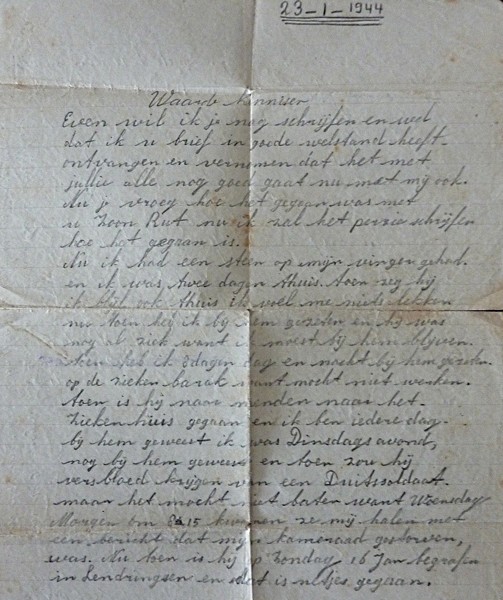 23-1-1944
Waarde Kennissen
Even wil ik je nog schrijfen en wel
dat ik u brief in goede welstand heeft
ontvangen en vernomen dat het met
jullie alle nog goed gaat nu met mij ook.
Nu je vroeg hoe het gegaan was met
u Zoon Rut nu ik zal het persies schrijfen
hoe het gegaan is.
Nu ik had een steen op mijn vinger gehad.
en ik was twee dagen thuis. toen zeg hij
ik blijf ook thuis ik voel me niets lekker
nu toen heb ik bij hem gezeten en hij was
nog al ziek want ik moest bij hem blijven.
toen heb ik 8 dagen dag en nacht bij hem gezeten.
op de zieken barak want mocht niet werken.
toen is hij naar menden naar het.
Ziekenhuis gegaan en ik ben iedere dag.
bij hem geweest ik was Dinsdagsavond,
nog bij hem geweest en toen zou hij
versbloed krijgen van een Duitssoldaat.
maar het mocht niet baten want Woensdag
Morgen om 8.15 kwamen ze mij halen met
een bericht dat mijn kameraad gestorven,
was. Nu toen is hij op Zondag 16 Jan begrafen
in Lendringsen en dat is netjes gegaan.